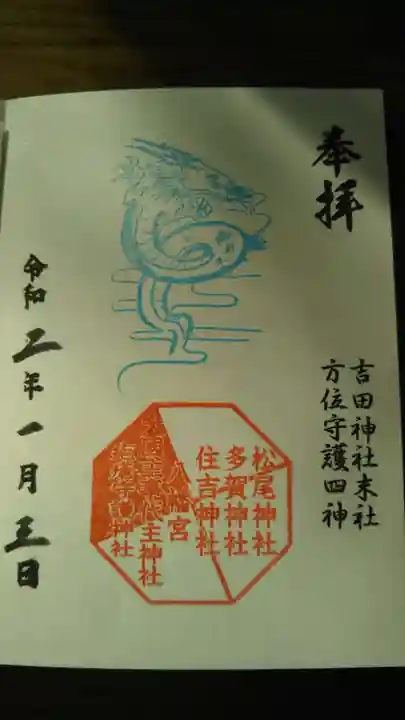 奉拝
吉田神社末社
方位守護四神
松尾神社
多賀神社
住吉神社
八幡宮
主神社
神社
令和二年一月三日